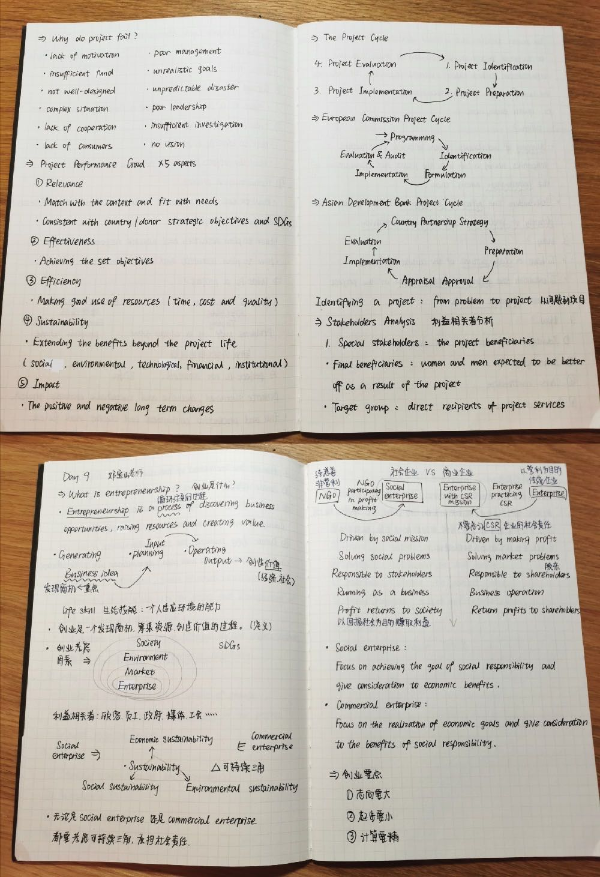 ⇒ Why do project fail?
· lack of motivation · poor management
· insufficient fund · unrealistic goals
· not well-designed · unpredictable disaster
· complex situation · poor leadership
· lack of cooperation · insufficient investigation
· lack of consumers · no vision
⇒ Project Performance Goal x5 aspects
① Relevance
· Match with the context and fit with needs
· Consistent with country/donor strategic objectives and SDGs
② Effectiveness
· Achieving the set objectives
③ Efficiency
· Making good use of resources (time, cost and quality)
④ Sustainability
· Extending the benefits beyond the project life
(social, environmental, technological, financial, institutional)
⑤ Impact
· The positive and negative long term changes
⇒ The Project Cycle
4. Project Evaluation → 1. Project Identification
3. Project Implementation 2. Project Preparation
⇒ European Commission Project Cycle
→ Programming
Evaluation & Audit Identification
Implementation Formulation
⇒ Asian Development Bank Project Cycle
Country Partnership Strategy
Evaluation
Preparation
Implementation
Appraisal Approval
Identifying a project: from problem to project 从问题到项目
⇒ Stakeholders Analysis 利益相关者分析
1. Special stakeholders: the project beneficiaries
· Final beneficiaries: women and men expected to be better
off as a result of the project
· Target group: direct recipients of project services
Day 9
⇒ What is entrepreneurship? 创业是什么?
· Entrepreneurship is a process of discovering business
opportunities, raising resources and creating value.
Input
· Generating · planning · Operating
Business idea Output → 创造价值
(经济,社会)
Life skill 生活技能:个人适应环境的能力
· 创业是一个发现商机,筹集资源,创造价值的过程。(定义)
· 创业发展 Society SDGs
因素 ⇒ Environment
Market
Enterprise
利益相关者:顾客,员工,政府,媒体,工会……
Social enterprise ⇒ Economic sustainability ∈ Commercial enterprise
· Sustainability △可持续三角
Social sustainability Environmental sustainability
· 无论是 social enterprise 还是 commercial enterprise
都要考虑可持续三角,承担社会责任.
社会企业 VS 商业企业
非营利 NGO NGO participating in profit making Social enterprise Enterprise with CSR mission Enterprise practicing CSR Enterprise
CSR 企业的社会责任
Driven by social mission Driven by making profit
Solving social problems Solving market problems
Responsible to stakeholders Responsible to shareholders 股东
Running as a business Business operation
Profit returns to society Return profits to shareholders
· Social enterprise:
Focus on achieving the goal of social responsibility and
give consideration to economic benefits.
· Commercial enterprise:
Focus on the realization of economic goals and give consideration
to the benefits of social responsibility.
⇒ 创业重点
① 志向要大
② 起步要小
③ 计算要精